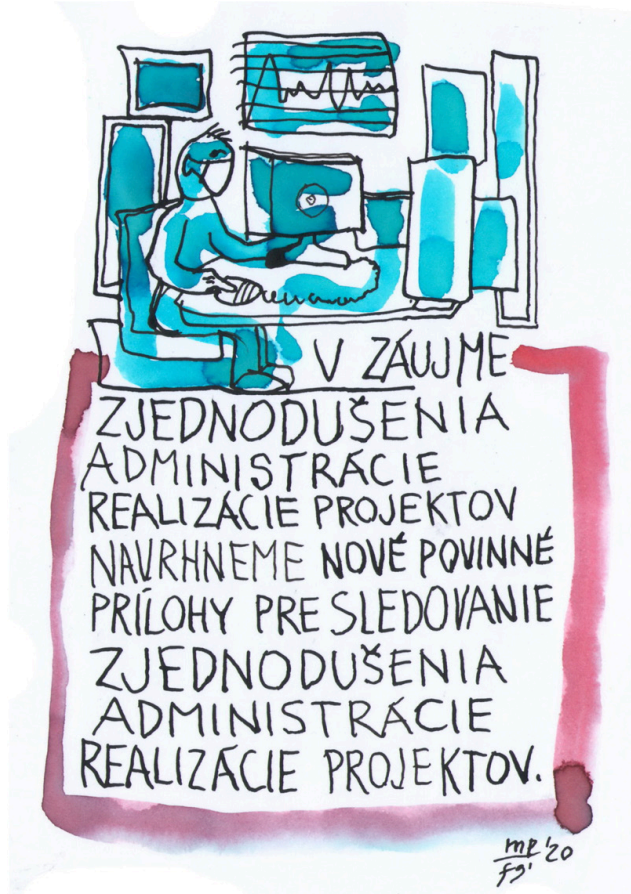 V ZÁUJME
ZJEDNODUŠENIA
ADMINISTRÁCIE
REALIZÁCIE PROJEKTOV
NAVRHNEME NOVÉ POVINNÉ
PRÍLOHY PRE SLEDOVANIE
ZJEDNODUŠENIA
ADMINISTRÁCIE
REALIZÁCIE PROJEKTOV.
'20